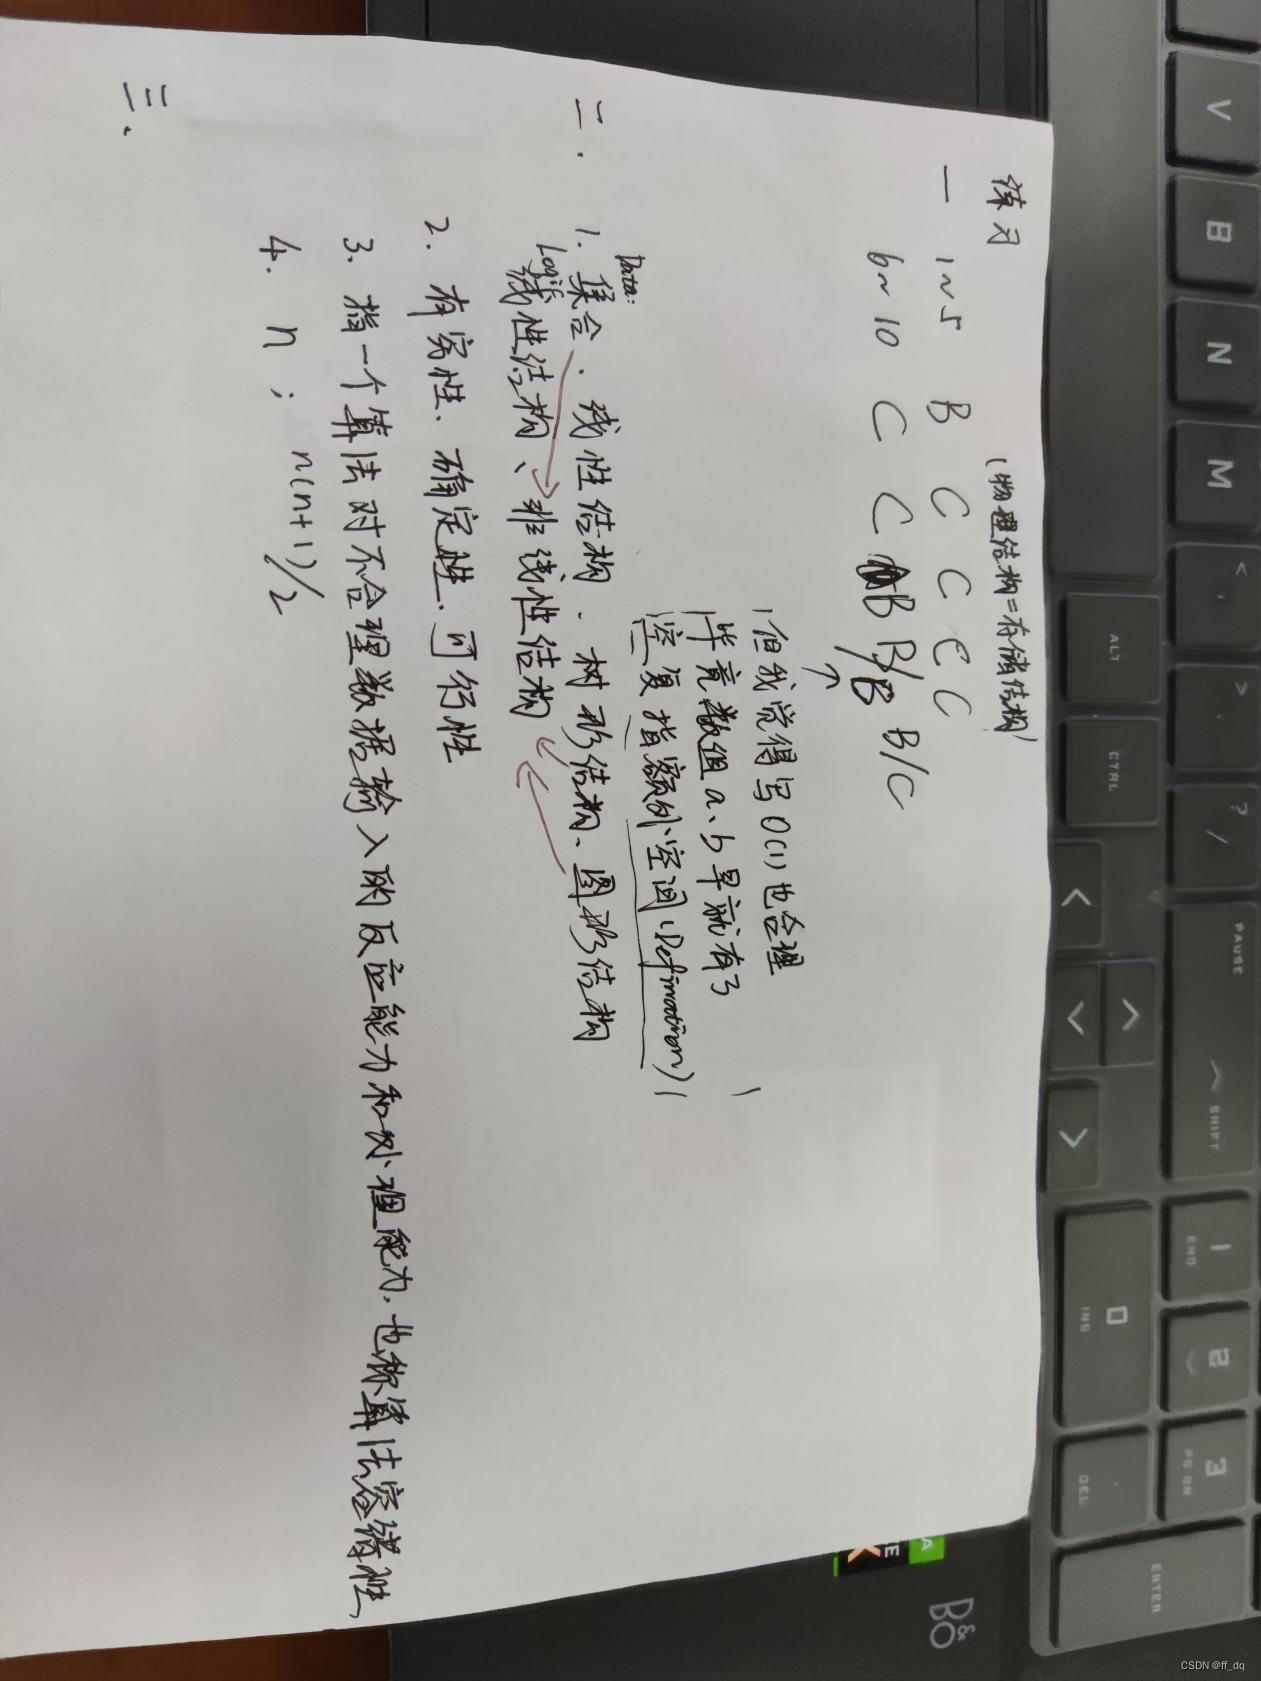 练习 (物理结构=存储结构)
一 1~5 B C C C C
6~10 C C B B/B B/C
↑
(但我觉得写O(1)也合理
毕竟数组a、b早就有了)
空复指额外空间(Defination)
二.
Data:
1. 集合、线性结构、树形结构、图形结构
Logic
线性结构、非线性结构
2. 有穷性、确定性、可行性
3. 指一个算法对不合理数据输入的反应能力和处理能力,也称算法容错性
4. n; n(n+1)/2
三.
V
B
N
M
<
,
>
.
?
/
ALT
CTRL
PAUSE
SHIFT
1
END
0
INS
2
3
PG DN
DEL
ENTER
B&O
CSDN @ff_dq